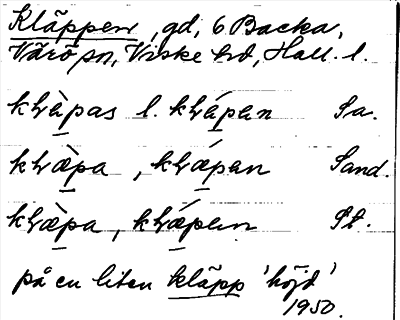 Kläppen, gd, 6 Backa,
Värö sn, Viske hd, Hall. l.
kḷæ̀pas l. kḷǽpen Sa.
kḷæ̀pa, kḷǽpen Sand.
kḷæ̀pa, kḷǽpen St.
på en liten kläpp 'höjd'
1950.